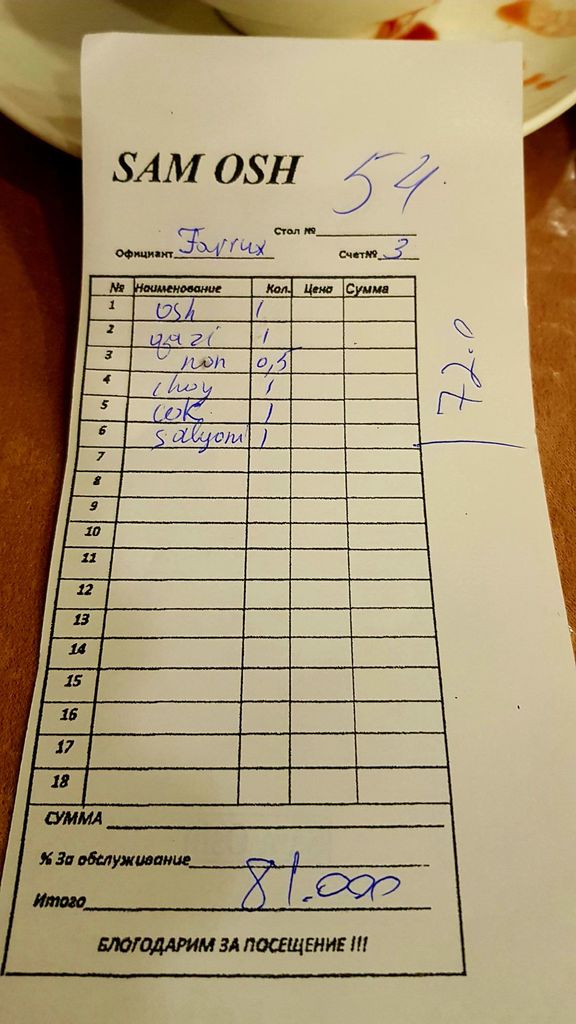 SAM OSH 54
Стол №
Официант Farrux Счет№ 3
№ Наименование Кол. Цена Сумма
1 osh 1
2 qazi 1
3 non 0,5
4 choy 1
5 cok 1
6 salyoni 1
7
8
9
10
11
12
13
14
15
16
17
18
72.0
СУММА
% За обслуживание
Итого 81.000
БЛОГОДАРИМ ЗА ПОСЕЩЕНИЕ !!!